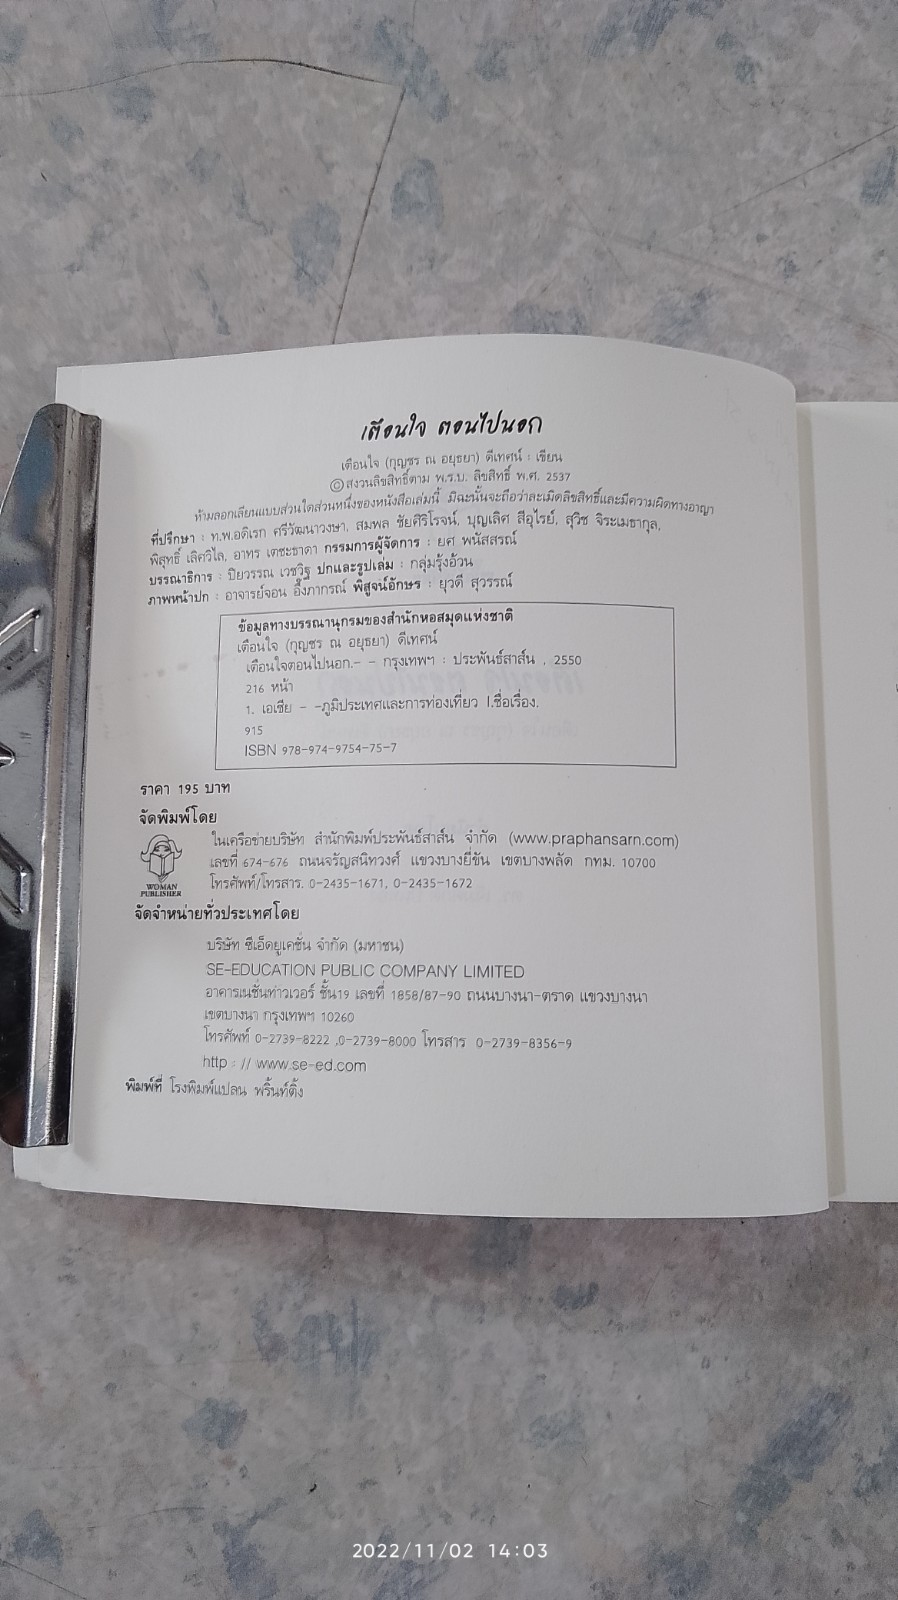 เตือนใจ ตอนไปนอก
เตือนใจ (กุญชร ณ อยุธยา) ดีเทศน์ : เขียน
© สงวนลิขสิทธิ์ตาม พ.ร.บ. ลิขสิทธิ์ พ.ศ. 2537
ห้ามลอกเลียนแบบส่วนใดส่วนหนึ่งของหนังสือเล่มนี้ มิฉะนั้นจะถือว่าละเมิดลิขสิทธิ์และมีความผิดทางอาญา
ที่ปรึกษา : ท.พ.อดิเรก ศรีวัฒนาวงษา, สมพล ชัยศิริโรจน์, บุญเลิศ สีอุไรย์, สุวิช จิระเมธากุล,
พิสุทธิ์ เลิศวิไล, อาทร เตชะธาดา กรรมการผู้จัดการ : ยศ พนัสสรณ์
บรรณาธิการ : ปิยวรรณ เวชวิฐ ปกและรูปเล่ม : กลุ่มรุ้งอ้วน
ภาพหน้าปก : อาจารย์จอน อึ๊งภากรณ์ พิสูจน์อักษร : ยุวดี สุวรรณ์
ข้อมูลทางบรรณานุกรมของสำนักหอสมุดแห่งชาติ
เตือนใจ (กุญชร ณ อยุธยา) ดีเทศน์
เตือนใจตอนไปนอก.- - กรุงเทพฯ : ประพันธ์สาส์น , 2550
216 หน้า
1. เอเชีย - -ภูมิประเทศและการท่องเที่ยว I.ชื่อเรื่อง.
915
ISBN 978-974-9754-75-7
ราคา 195 บาท
จัดพิมพ์โดย
ในเครือข่ายบริษัท สำนักพิมพ์ประพันธ์สาส์น จำกัด (www.praphansarn.com)
เลขที่ 674-676 ถนนจรัญสนิทวงศ์ แขวงบางยี่ขัน เขตบางพลัด กทม. 10700
โทรศัพท์/โทรสาร. 0-2435-1671, 0-2435-1672
WOMAN
PUBLISHER
จัดจำหน่ายทั่วประเทศโดย
บริษัท ซีเอ็ดยูเคชั่น จำกัด (มหาชน)
SE-EDUCATION PUBLIC COMPANY LIMITED
อาคารเนชั่นทาวเวอร์ ชั้น19 เลขที่ 1858/87-90 ถนนบางนา-ตราด แขวงบางนา
เขตบางนา กรุงเทพฯ 10260
โทรศัพท์ 0-2739-8222 ,0-2739-8000 โทรสาร 0-2739-8356-9
http : // www.se-ed.com
พิมพ์ที่ โรงพิมพ์แปลน พริ้นท์ติ้ง
2022/11/02 14:03